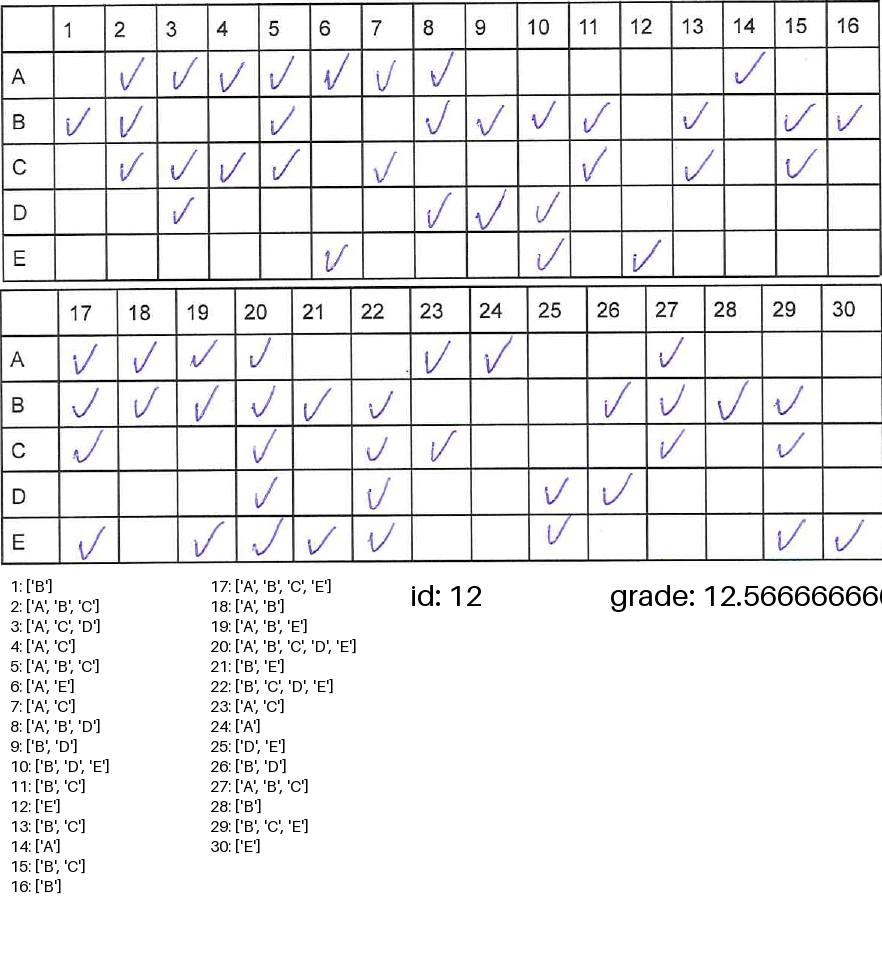 1 2 3 4 5 6 7 8 9 10 11 12 13 14 15 16
A ✓ ✓ ✓ ✓ ✓ ✓ ✓ ✓
B ✓ ✓ ✓ ✓ ✓ ✓ ✓ ✓ ✓ ✓
C ✓ ✓ ✓ ✓ ✓ ✓ ✓ ✓
D ✓ ✓ ✓ ✓
E ✓ ✓ ✓
17 18 19 20 21 22 23 24 25 26 27 28 29 30
A ✓ ✓ ✓ ✓ ✓ ✓ ✓
B ✓ ✓ ✓ ✓ ✓ ✓ ✓ ✓ ✓ ✓
C ✓ ✓ ✓ ✓ ✓ ✓
D ✓ ✓ ✓ ✓
E ✓ ✓ ✓ ✓ ✓ ✓ ✓ ✓
1: ['B']
2: ['A', 'B', 'C']
3: ['A', 'C', 'D']
4: ['A', 'C']
5: ['A', 'B', 'C']
6: ['A', 'E']
7: ['A', 'C']
8: ['A', 'B', 'D']
9: ['B', 'D']
10: ['B', 'D', 'E']
11: ['B', 'C']
12: ['E']
13: ['B', 'C']
14: ['A']
15: ['B', 'C']
16: ['B']
17: ['A', 'B', 'C', 'E']
18: ['A', 'B']
19: ['A', 'B', 'E']
20: ['A', 'B', 'C', 'D', 'E']
21: ['B', 'E']
22: ['B', 'C', 'D', 'E']
23: ['A', 'C']
24: ['A']
25: ['D', 'E']
26: ['B', 'D']
27: ['A', 'B', 'C']
28: ['B']
29: ['B', 'C', 'E']
30: ['E']
id: 12
grade: 12.566666666